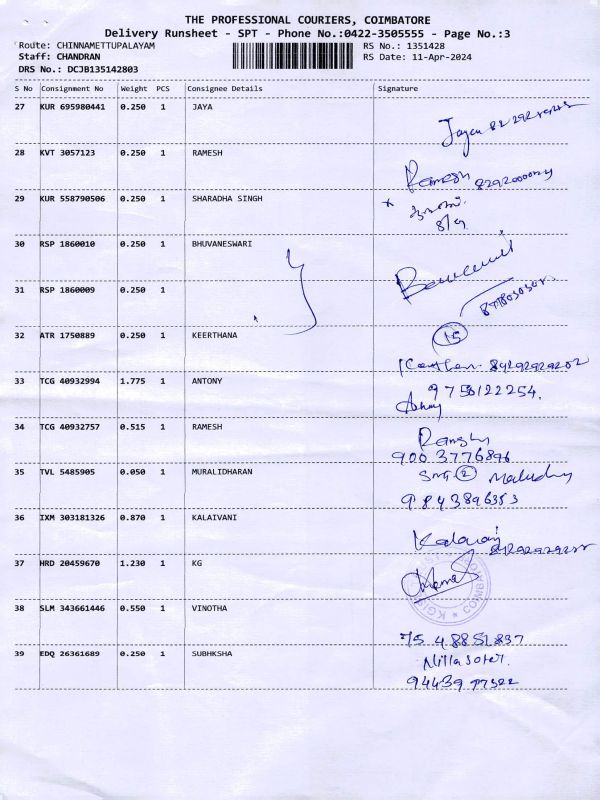 THE PROFESSIONAL COURIERS, COIMBATORE
Delivery Runsheet - SPT - Phone No.:0422-3505555 - Page No.:3
Route: CHINNAMETTUPALAYAM RS No.: 1351428
Staff: CHANDRAN RS Date: 11-Apr-2024
DRS No.: DCJB135142803
S No Consignment No Weight PCS Consignee Details Signature
27 KUR 695980441 0.250 1 JAYA
28 KVT 3057123 0.250 1 RAMESH
Ramesh
29 KUR 558790506 0.250 1 SHARADHA SINGH
30 RSP 1860010 0.250 1 BHUVANESWARI
31 RSP 1860009 0.250 1
15
32 ATR 1750889 0.250 1 KEERTHANA
33 TCG 40932994 1.775 1 ANTONY
9750122254.
34 TCG 40932757 0.515 1 RAMESH
900 3776896
35 TVL 5485905 0.050 1 MURALIDHARAN
9843896353
36 IXM 303181326 0.870 1 KALAIVANI
37 HRD 20459670 1.230 1 KG
COIMBATORE
38 SLM 343661446 0.550 1 VINOTHA
75 48851837
39 EDQ 26361689 0.250 1 SUBHKSHA
94439 77322